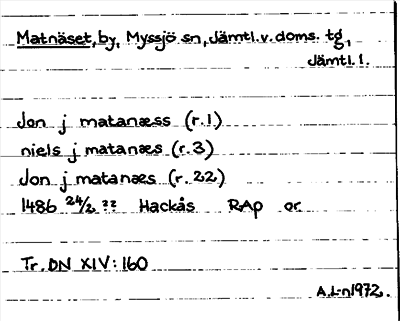 Matnäset, by, Myssjö sn, Jämtl.v.doms. tg,
Jämtl.l.
Jon j matanæss (r.1)
niels j matanæs (r.3)
Jon j matanæs (r.22)
1486 24/2 ?? Hackås RAp or.
Tr. DN XIV:160
A.L-n1972.